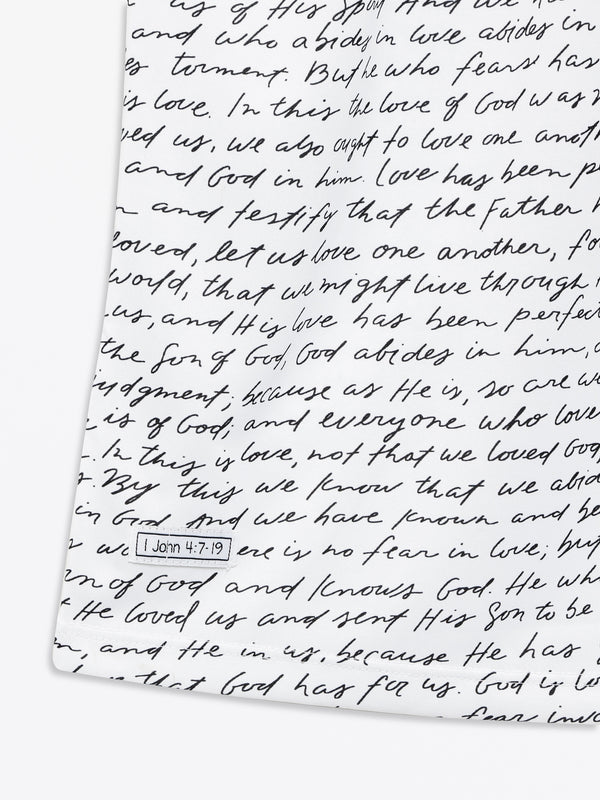 us of His Spirit And we
and who abides in love abides in
torment. But he who fears has
is love. In this the love of God was
us, we also ought to love one
and God in him. Love has been
and testify that the Father
loved, let us love one another, for
world, that we might live through
us, and His love has been
the Son of God, God abides in him,
judgment; because as He is, so are we
is of God; and everyone who
In this is love, not that we loved God,
By this we know that we
in God And we have known and
1 John 4:7-19
ere is no fear in love; but
of God and knows God. He
He loved us and sent His Son to be
and He in us, because He has
that God has for us. God is
fear